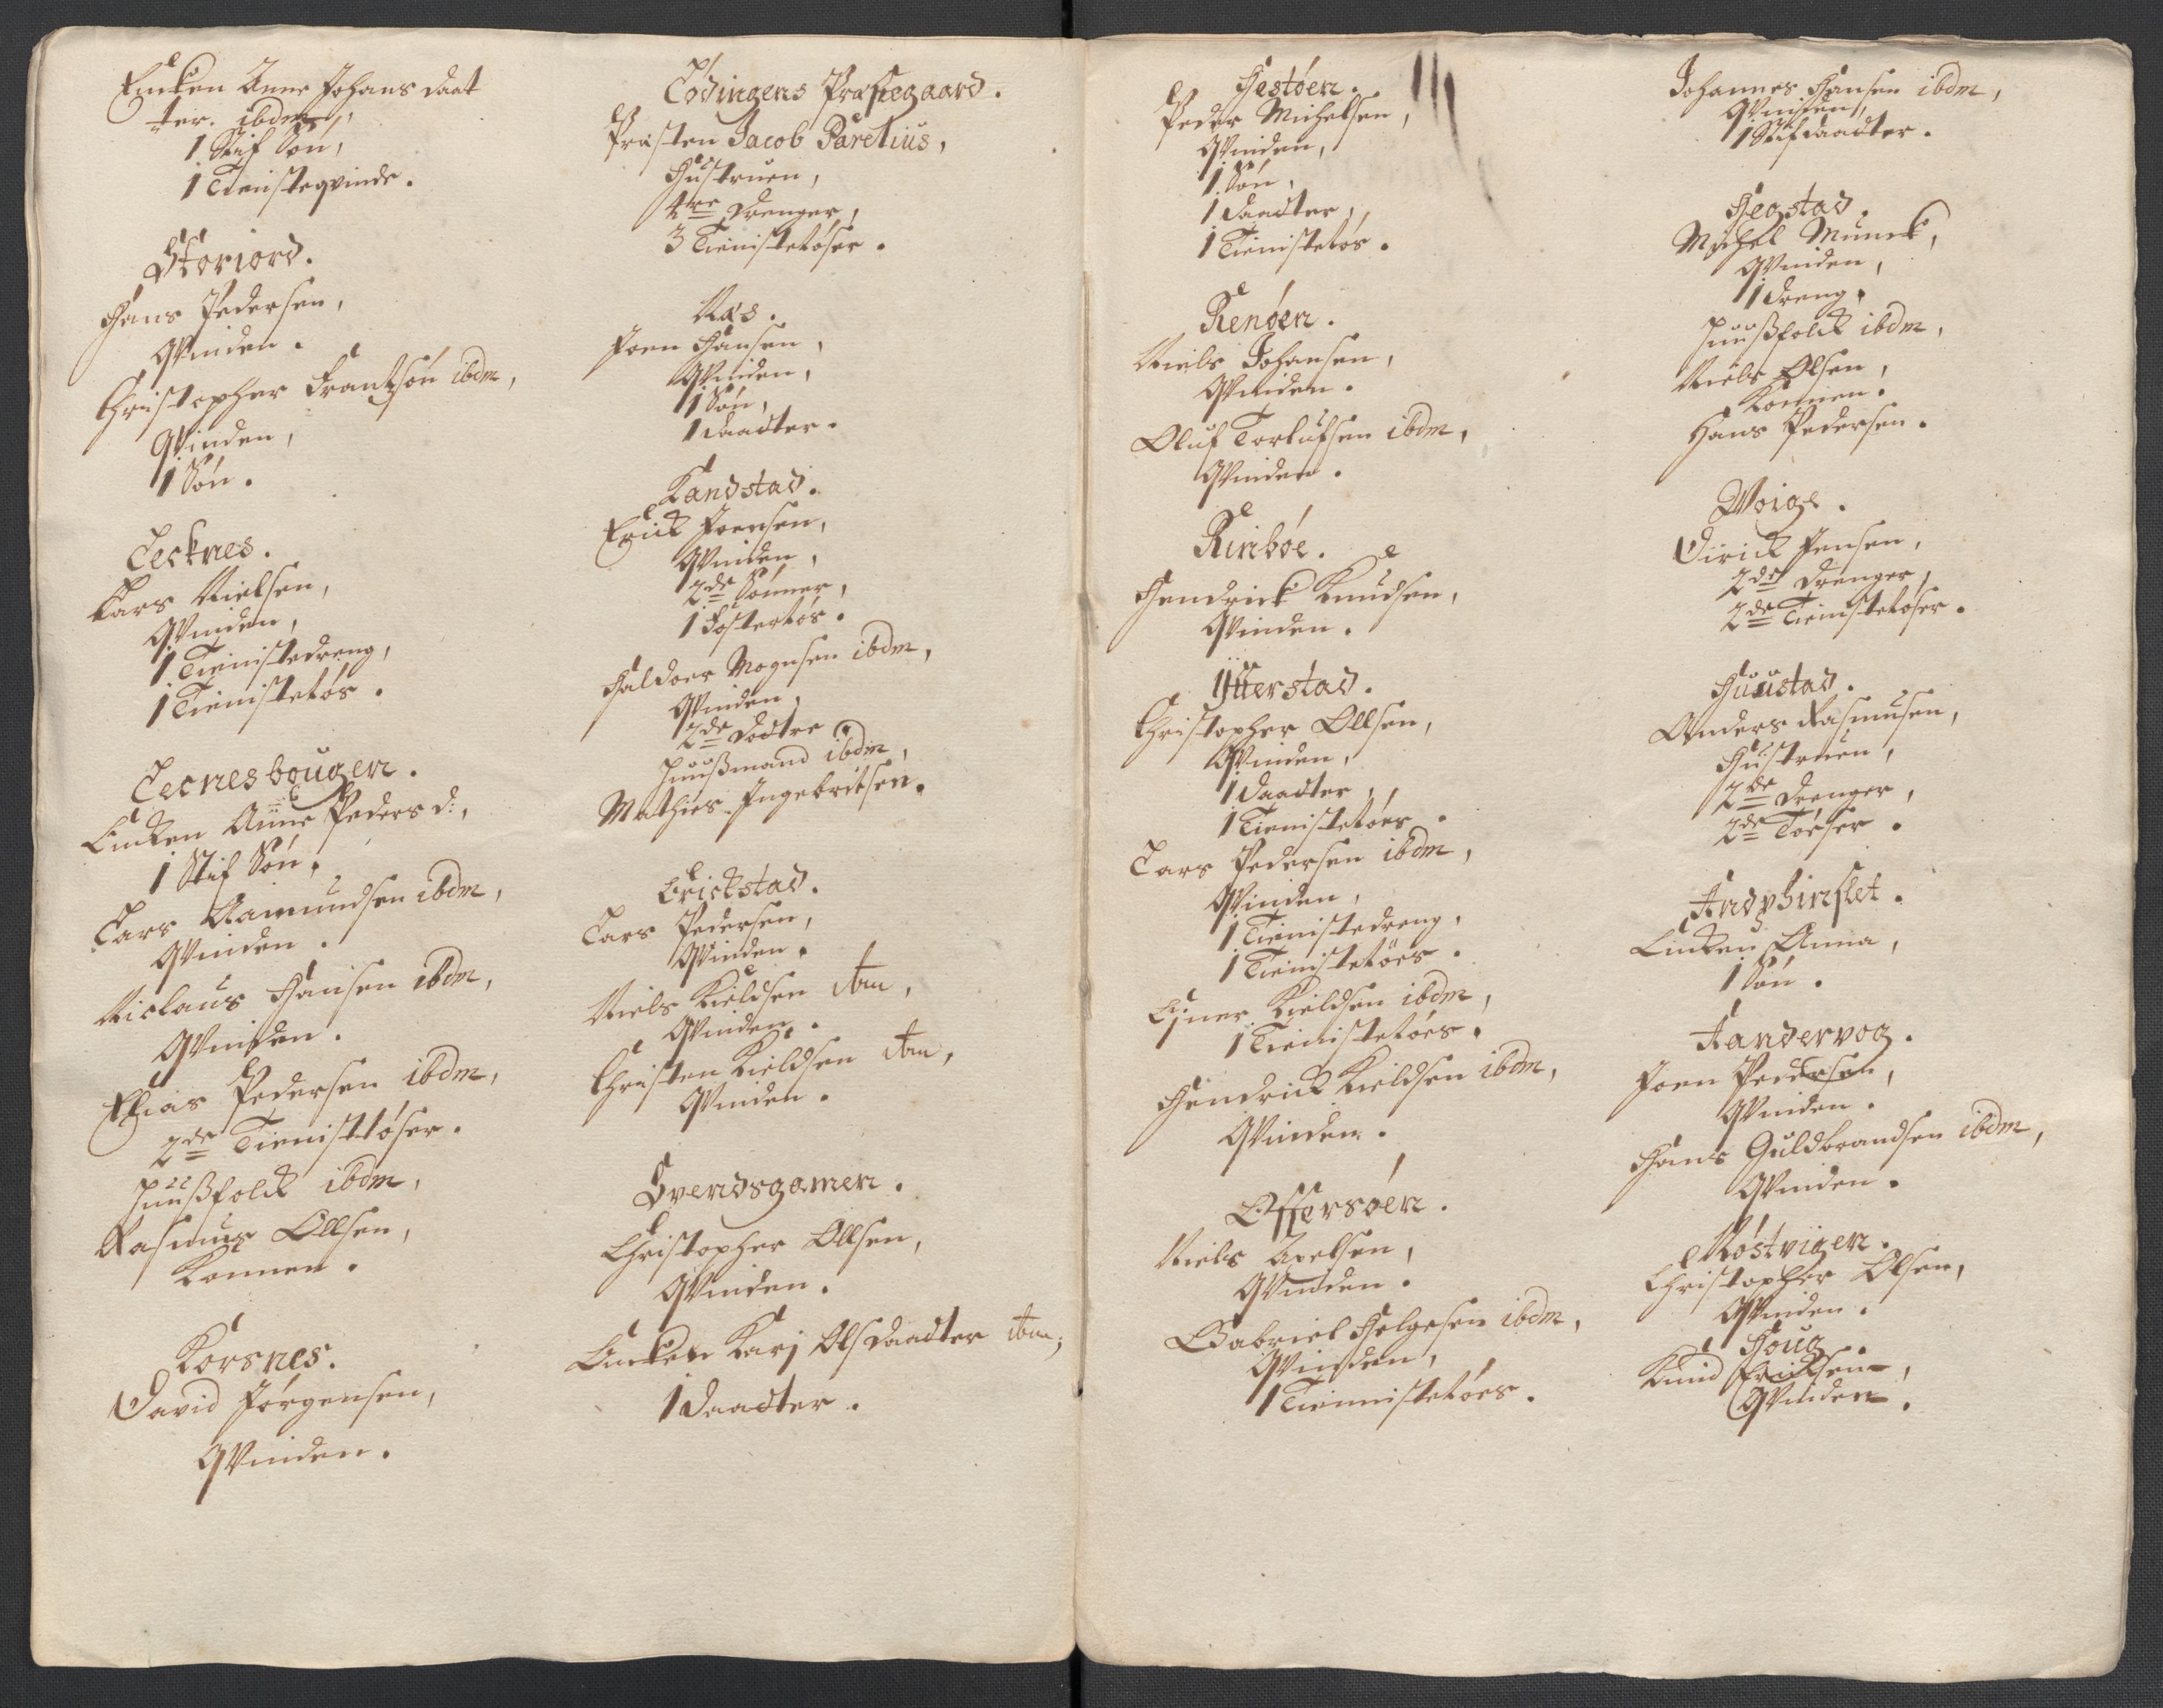 Encken Anne Johans daat
ter. ibdm,
1 Stif Søn,
1 Tienisteqvinde.
Storiord.
Hans Pedersen,
Qvinden.
Christopher Frantzøn ibdm,
Qvinden,
1 Søn.
Lecknes.
Lars Nielsen,
Qvinden,
1 Tienistedreng,
1 Tienistetøs.
Lecnesbougen.
Encken Anne Peders d:,
1 Stif Søn.
Lars Aamundsen ibdm,
Qvinden.
Niclaus Hansen ibdm,
Qvinden.
Elias Pedersen ibdm,
2de Tienisttøser.
Huusfolck ibdm,
Rasmus Ollsen,
Konnen.
Korsnes.
David Jørgensen,
Qvinden.
Lødingens Præstegaard.
Præsten Jacob Parelius,
Hustruen,
4re Drenger,
3 Tienistetøser.
Næs.
Joen Hansen,
Qvinden,
1 Søn,
1 Daadter.
Kandstad.
Erick Joensen,
Qvinden,
2de Sønner,
1 Fostertøs.
Haldoer Mognsen ibdm,
Qvinden,
2de Dodtre
Huusmand ibdm,
Mathies Ingebritsen.
Erickstad.
Lars Pedersen,
Qvinden.
Niels Kieldsen ibm,
Qvinden.
Christen Kieldsen ibm,
Qvinden.
Svendsgamen.
Christopher Ollsen,
Qvinden.
Encken Karj Olsdaadter ibm,
1 Daadter.
Hestøen.
Peder Michelsen,
Qvinden,
1 Søn,
1 Daadter,
1 Tienistetøs.
Renøen.
Niels Johansen,
Qvinden.
Oluf Torlufsen ibdm,
Qvinden.
Rinbøe.
Hendrick Knudsen,
Qvinden.
Ytterstad.
Christopher Ollsen,
Qvinden,
1 Daadter,
1 Tienistetøes.
Lars Pedersen ibdm,
Qvinden,
1 Tienistedreng,
1 Tienistetøes.
Ejner Kieldsen ibdm,
1 Tienistetøes.
Hendrick Kieldsen ibdm,
Qvinden.
Offersøen.
Niels Axelsen,
Qvinden.
Gabriel Helgesen ibdm,
Qvinden,
1 Tiennistetøes.
Johannes Hansen ibdm,
Qvinden,
1 Stifdaadter.
Hegstad.
Michel Munck,
Qvinden,
1 Dreng.
Huusfolck ibdm,
Niels Olsen,
Konnen.
Hans Pedersen.
Woige.
Dirick Jensen,
2de Drenger,
2de Tienistetøser.
Huustad.
Anders Rasmusen,
Hustruen,
2de Drenger,
2de Tøeser.
Fndphinslet.
Encken Anna,
1 Søn.
Sandervog.
Joen Pedersen,
Qvinden.
Hans Guldbrandsen ibdm,
Qvinden.
Røstvigen.
Christopher Olsen,
Qvinden.
Houg.
Knud Ericksen,
Qvinden.